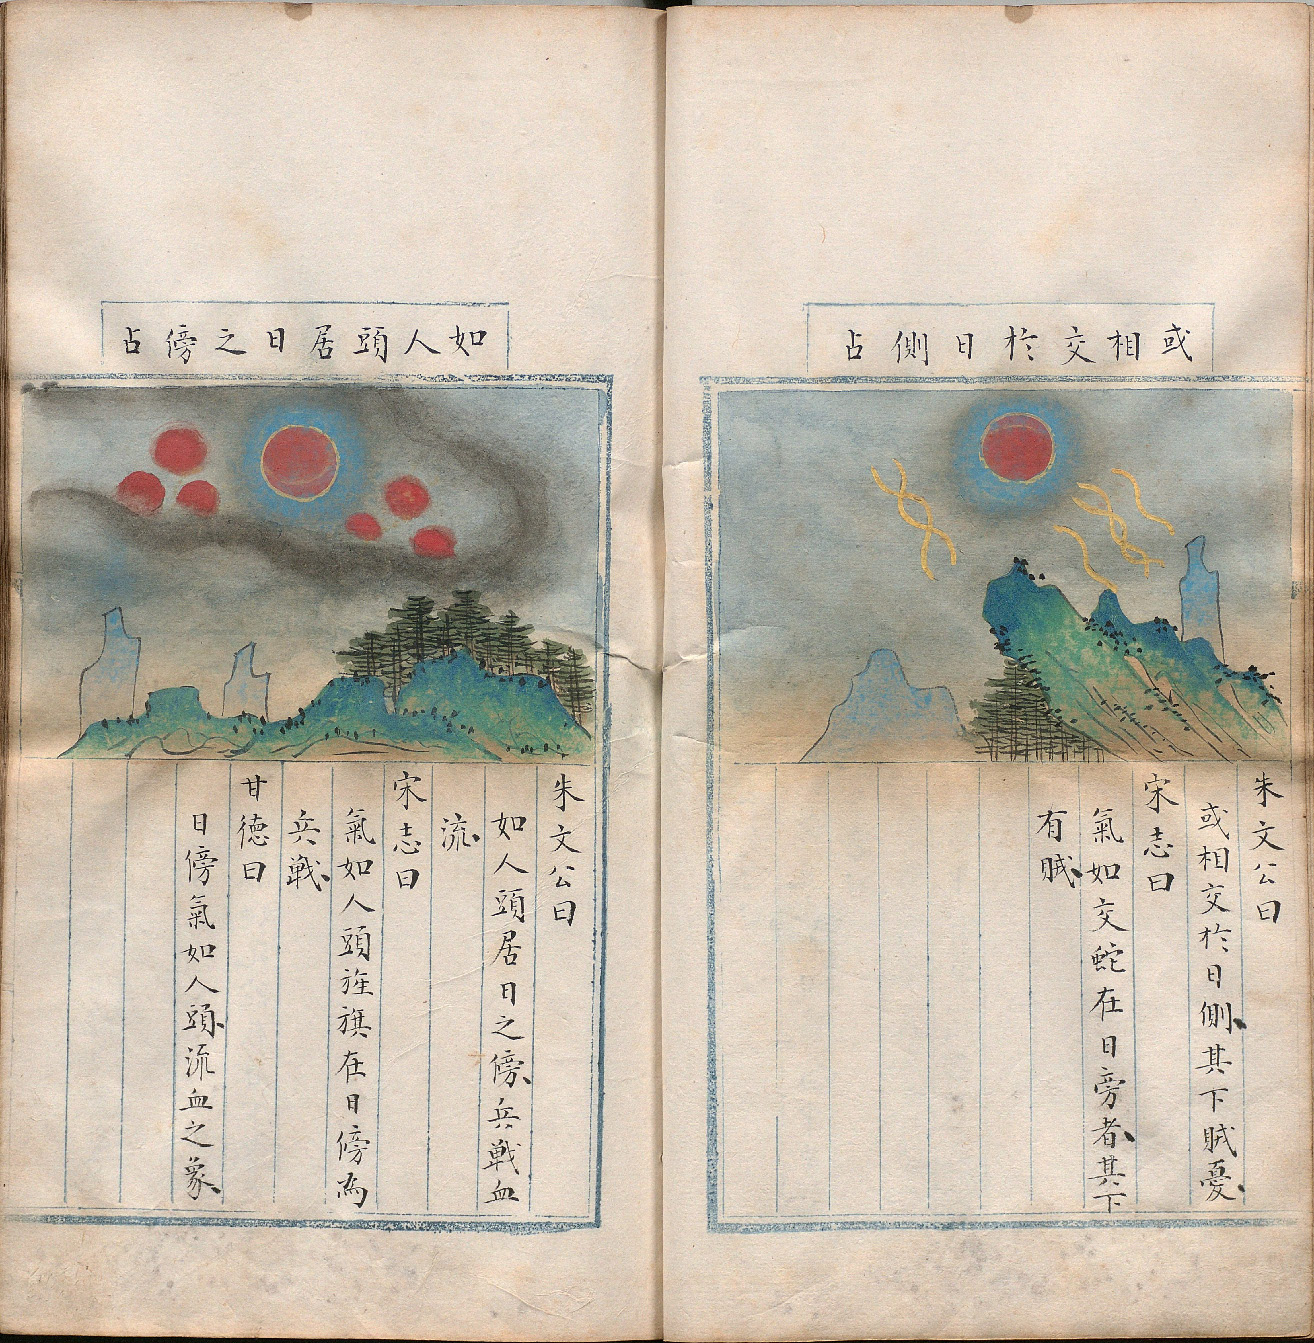 或相交於日側占
朱文公曰
或相交於日側其下賊憂
宋志曰
氣如交蛇在日旁者其下
有賊
如人頭居日之傍占
朱文公曰
如人頭居日之傍兵戰血
流
宋志曰
氣如人頭旌旗在日傍為
兵戰
甘德曰
日傍氣如人頭流血之象